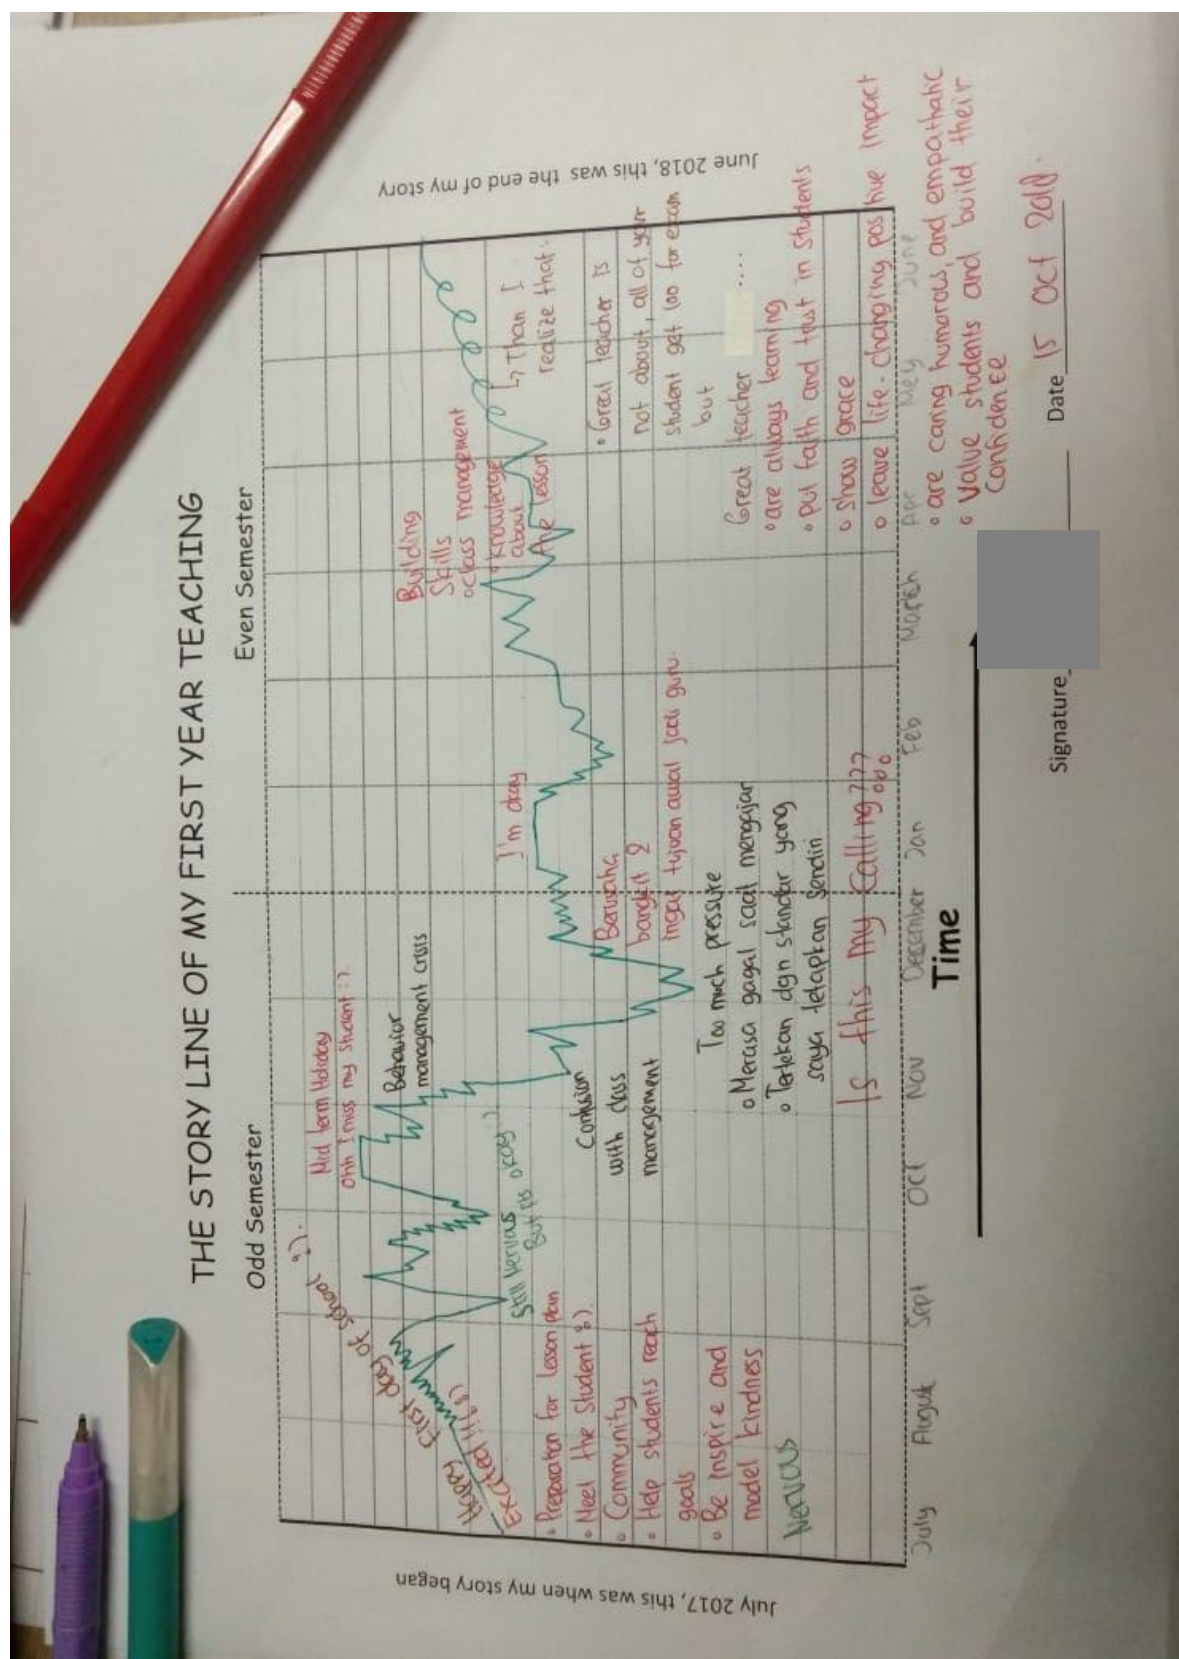 THE STORY LINE OF MY FIRST YEAR TEACHING
Odd Semester
Even Semester
July 2017, this was when my story began
Happy First day of school :).
Excited!!!
• Preparation for lesson plan
• Meet the student :).
• Community
• Help students reach
goals
• Be inspire and
model kindness
Nervous
Still Nervous
But its okay :)
Mid term Holiday
Ohh I miss my student :).
Behavior
management crisis
Confusion
with class
management
Too much pressure
• Merasa gagal saat mengajar
• Tertekan dgn standar yang
saya tetapkan sendiri
Is this my calling???
Berusaha
bangkit 2
ingat tujuan awal jadi guru.
I'm okay
Building
Skills
• class management
• knowledge
about
the lesson
↳ Than I
realize that:
• Great teacher is
not about, all of your
student get 100 for exam
but
Great teacher ....
• are always learning
• put faith and trust in students
• show grace
• leave life-changing positive impact
• are caring humorous, and empathatic
• Value students and build their
Confidence
June 2018, this was the end of my story
July August Sept Oct Nov December Jan Feb March Apr Mey June
Time
Signature
Date 15 Oct